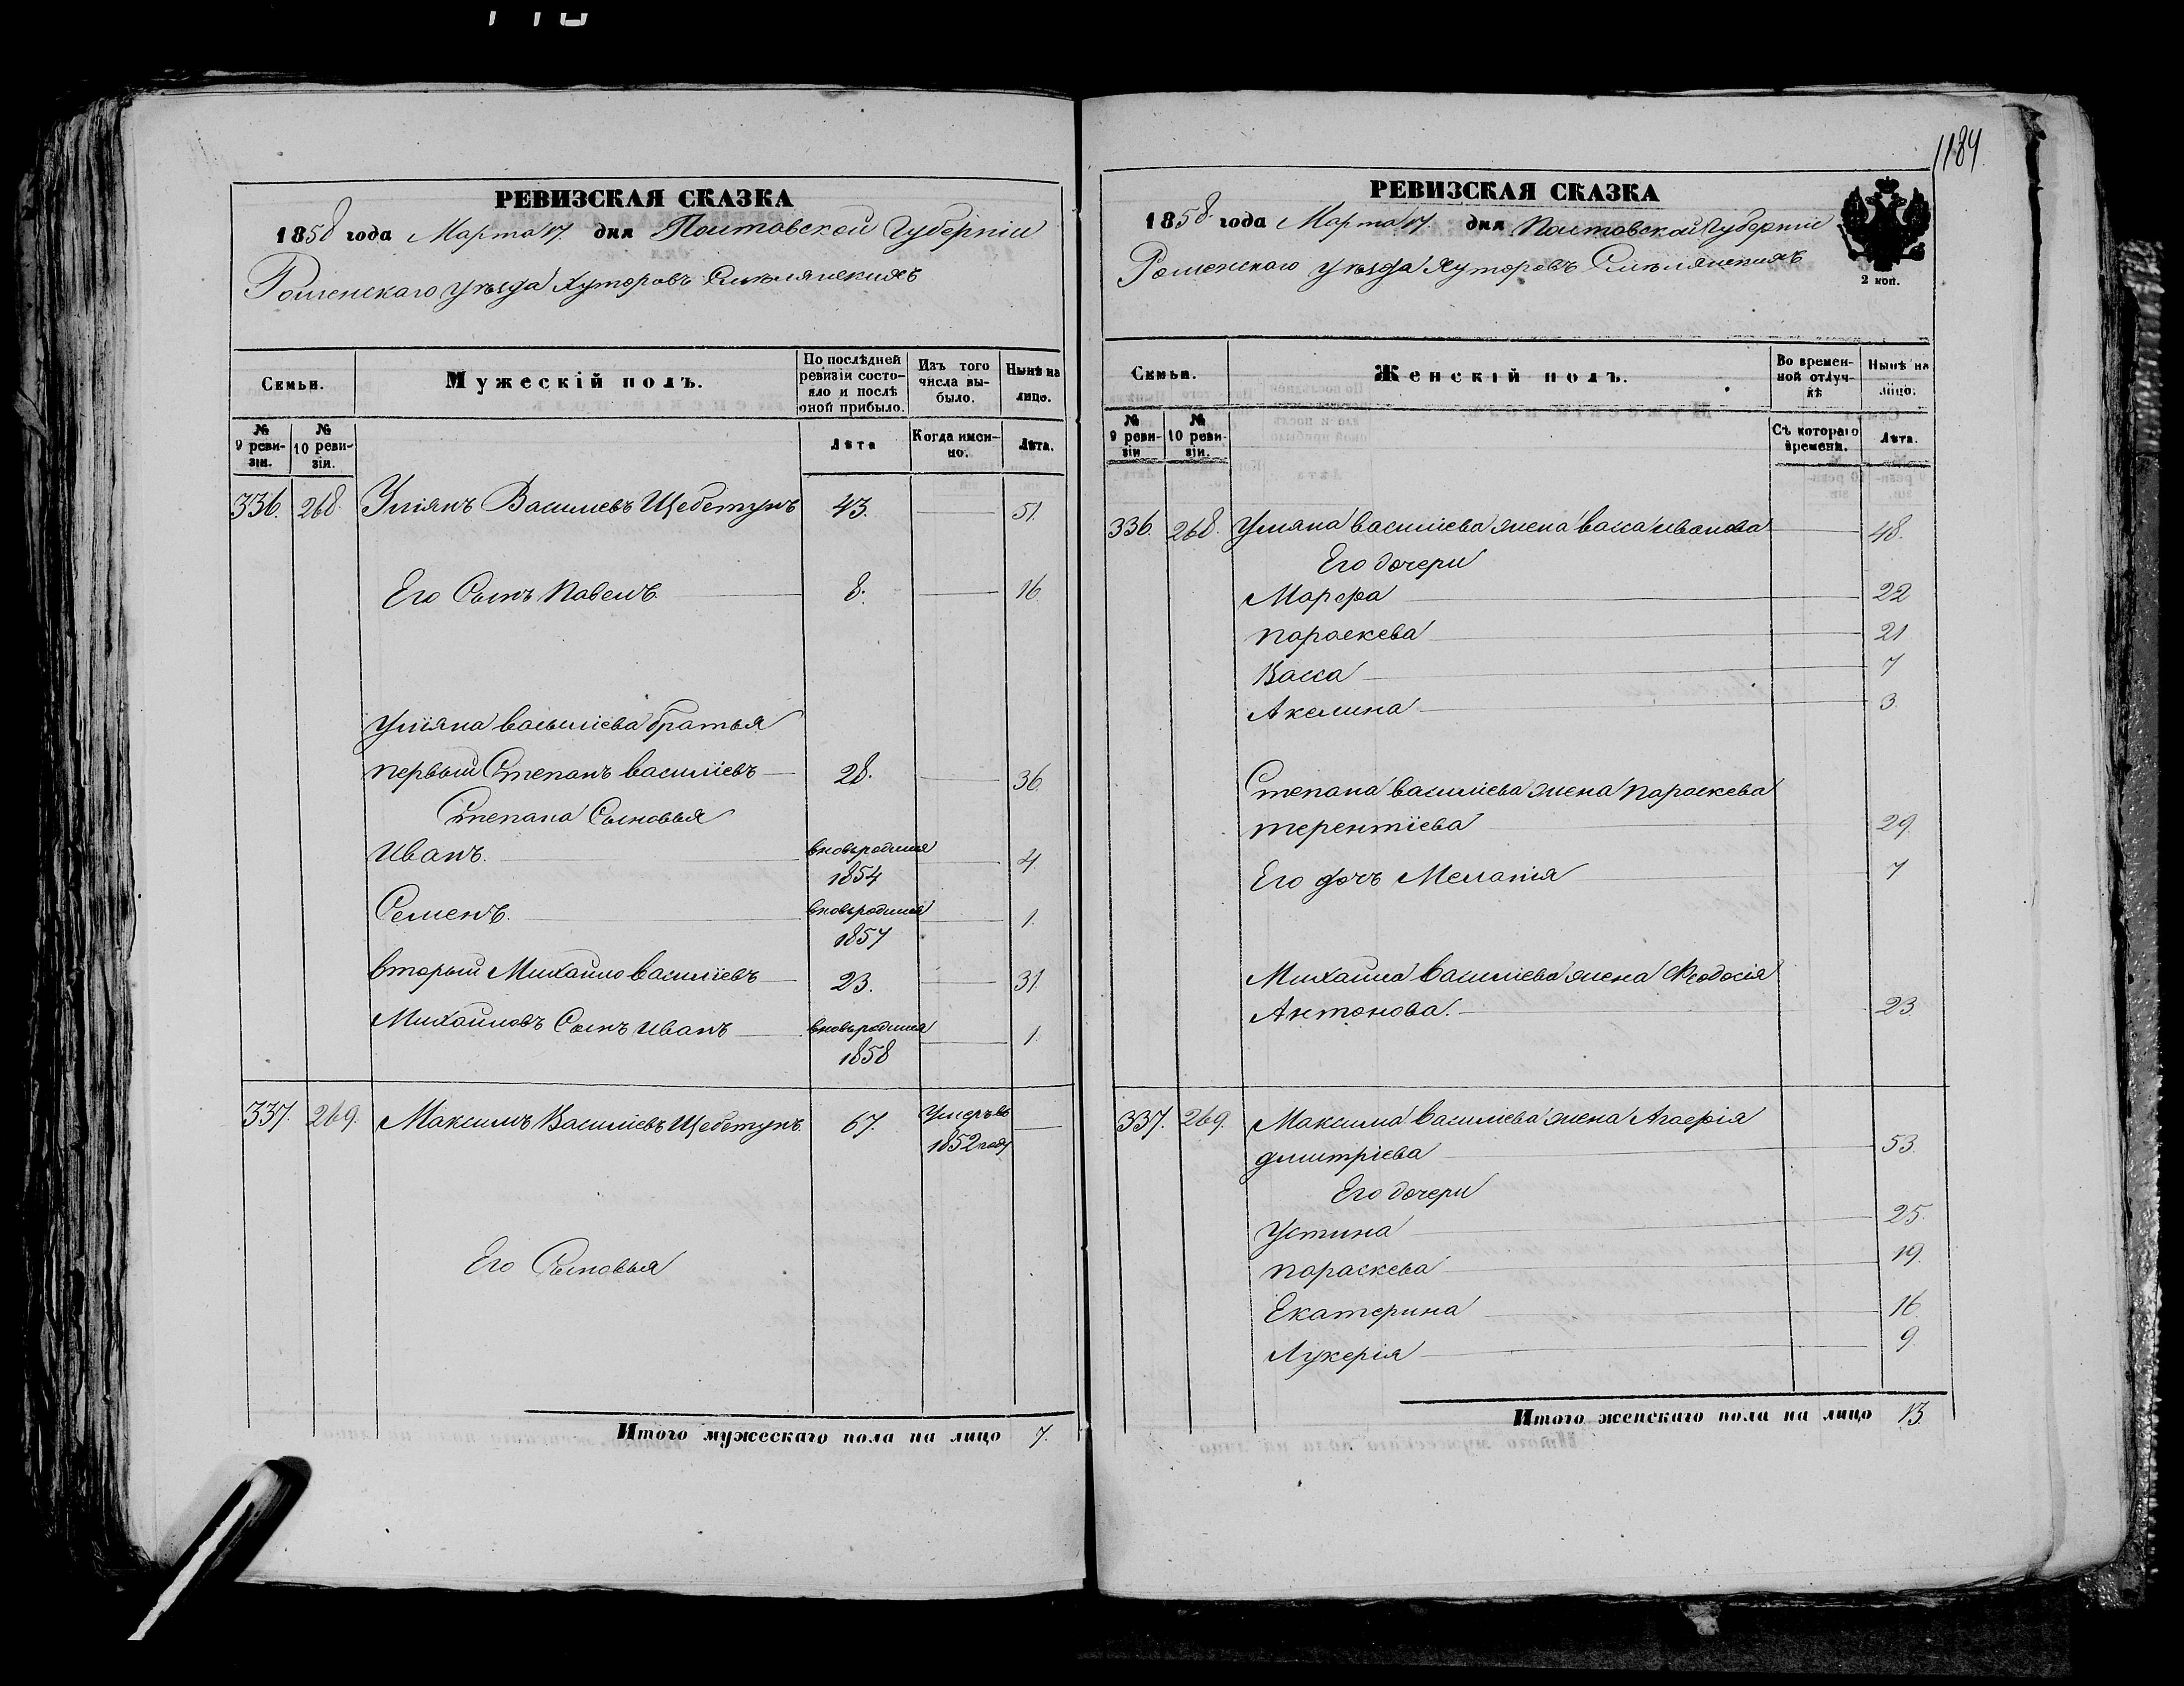 РЕВИЗСКАЯ СКАЗКА
1858 года Марта 17. дня Полтавской Губерніи
Роменскаго уѣзда Хуторовъ Смѣлянскихъ
Семьи.
Мужескій полъ.
По послѣдней ревизіи состояло и послѣ оной прибыло.
Изъ того числа выбыло.
Нынѣ на лицо.
№ 9 ревизіи.
№ 10 ревизіи.
Лѣта
Когда именно.
Лѣта.
336. 268. Уліянъ Василіевъ Щебетунъ 43. 51.
Его Сынъ Павелъ. 8. 16.
Уліяна василіева братья
первый Степанъ василіевъ 28. 36.
Степана Сыновья
Иванъ. вновьродился 1854 4.
Семенъ. вновьродился 1857 1.
вторый Михайло василіевъ 23. 31.
Михайловъ Сынъ иванъ вновьродился 1858 1.
337. 269. Максимъ Василіевъ Щебетунъ. 67. Умеръ въ 1852 году
Его Сыновья
Итого мужескаго пола на лицо 7.
1184
РЕВИЗСКАЯ СКАЗКА
1858 года Марта 17. дня Полтавской Губерніи
Роменскаго уѣзда Хуторовъ Смѣлянскихъ
2 коп.
Семьи.
Женскій полъ.
Во временной отлучкѣ
Нынѣ на лицо.
№ 9 ревизіи
№ 10 ревизіи.
Съ котораго времени.
Лѣта.
336. 268. Уліяна василіева жена васса иванова 48.
Его дочери
Марфа 22
параскева 21
Васса 7
Акелина 3
Степана василіева жена параскева
терентіева 29
Его дочь Меланія 7
Михайла василіева жена Феодосія
Антонова. 23
337. 269. Максима василіева жена Агафія
дмитріева 53
Его дочери
Устина 25.
параскева 19.
Екатерина 16
Лукерія 9
Итого женскаго пола на лицо 13.